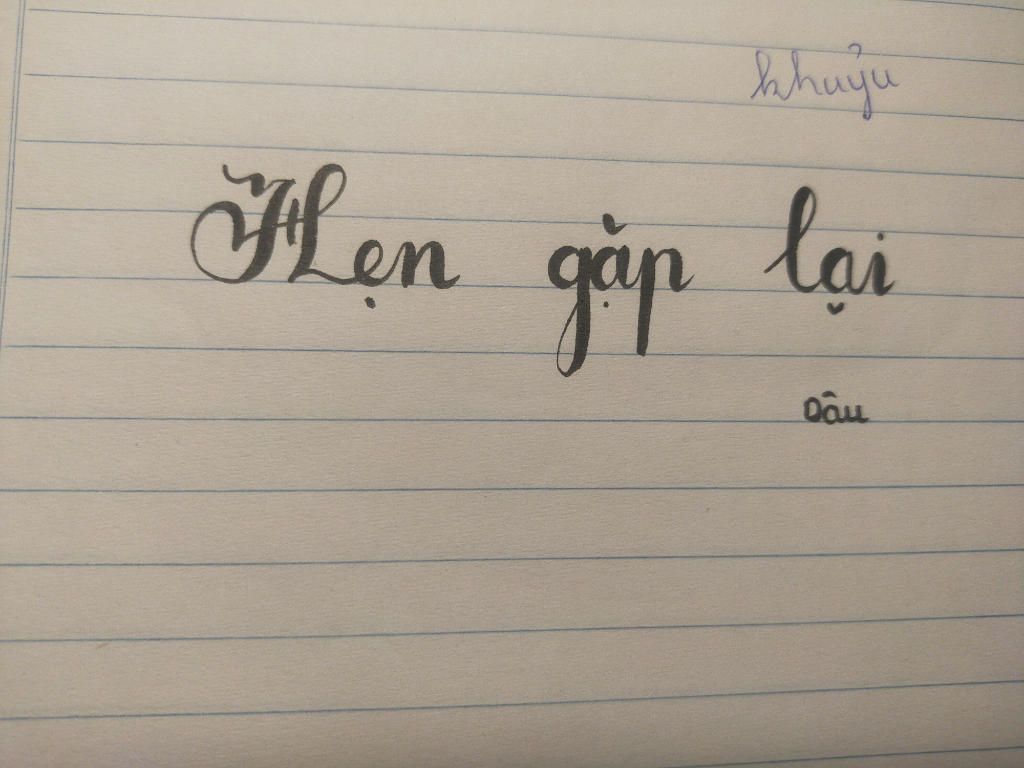 khuỷu
Hẹn gặp lại
Dâu